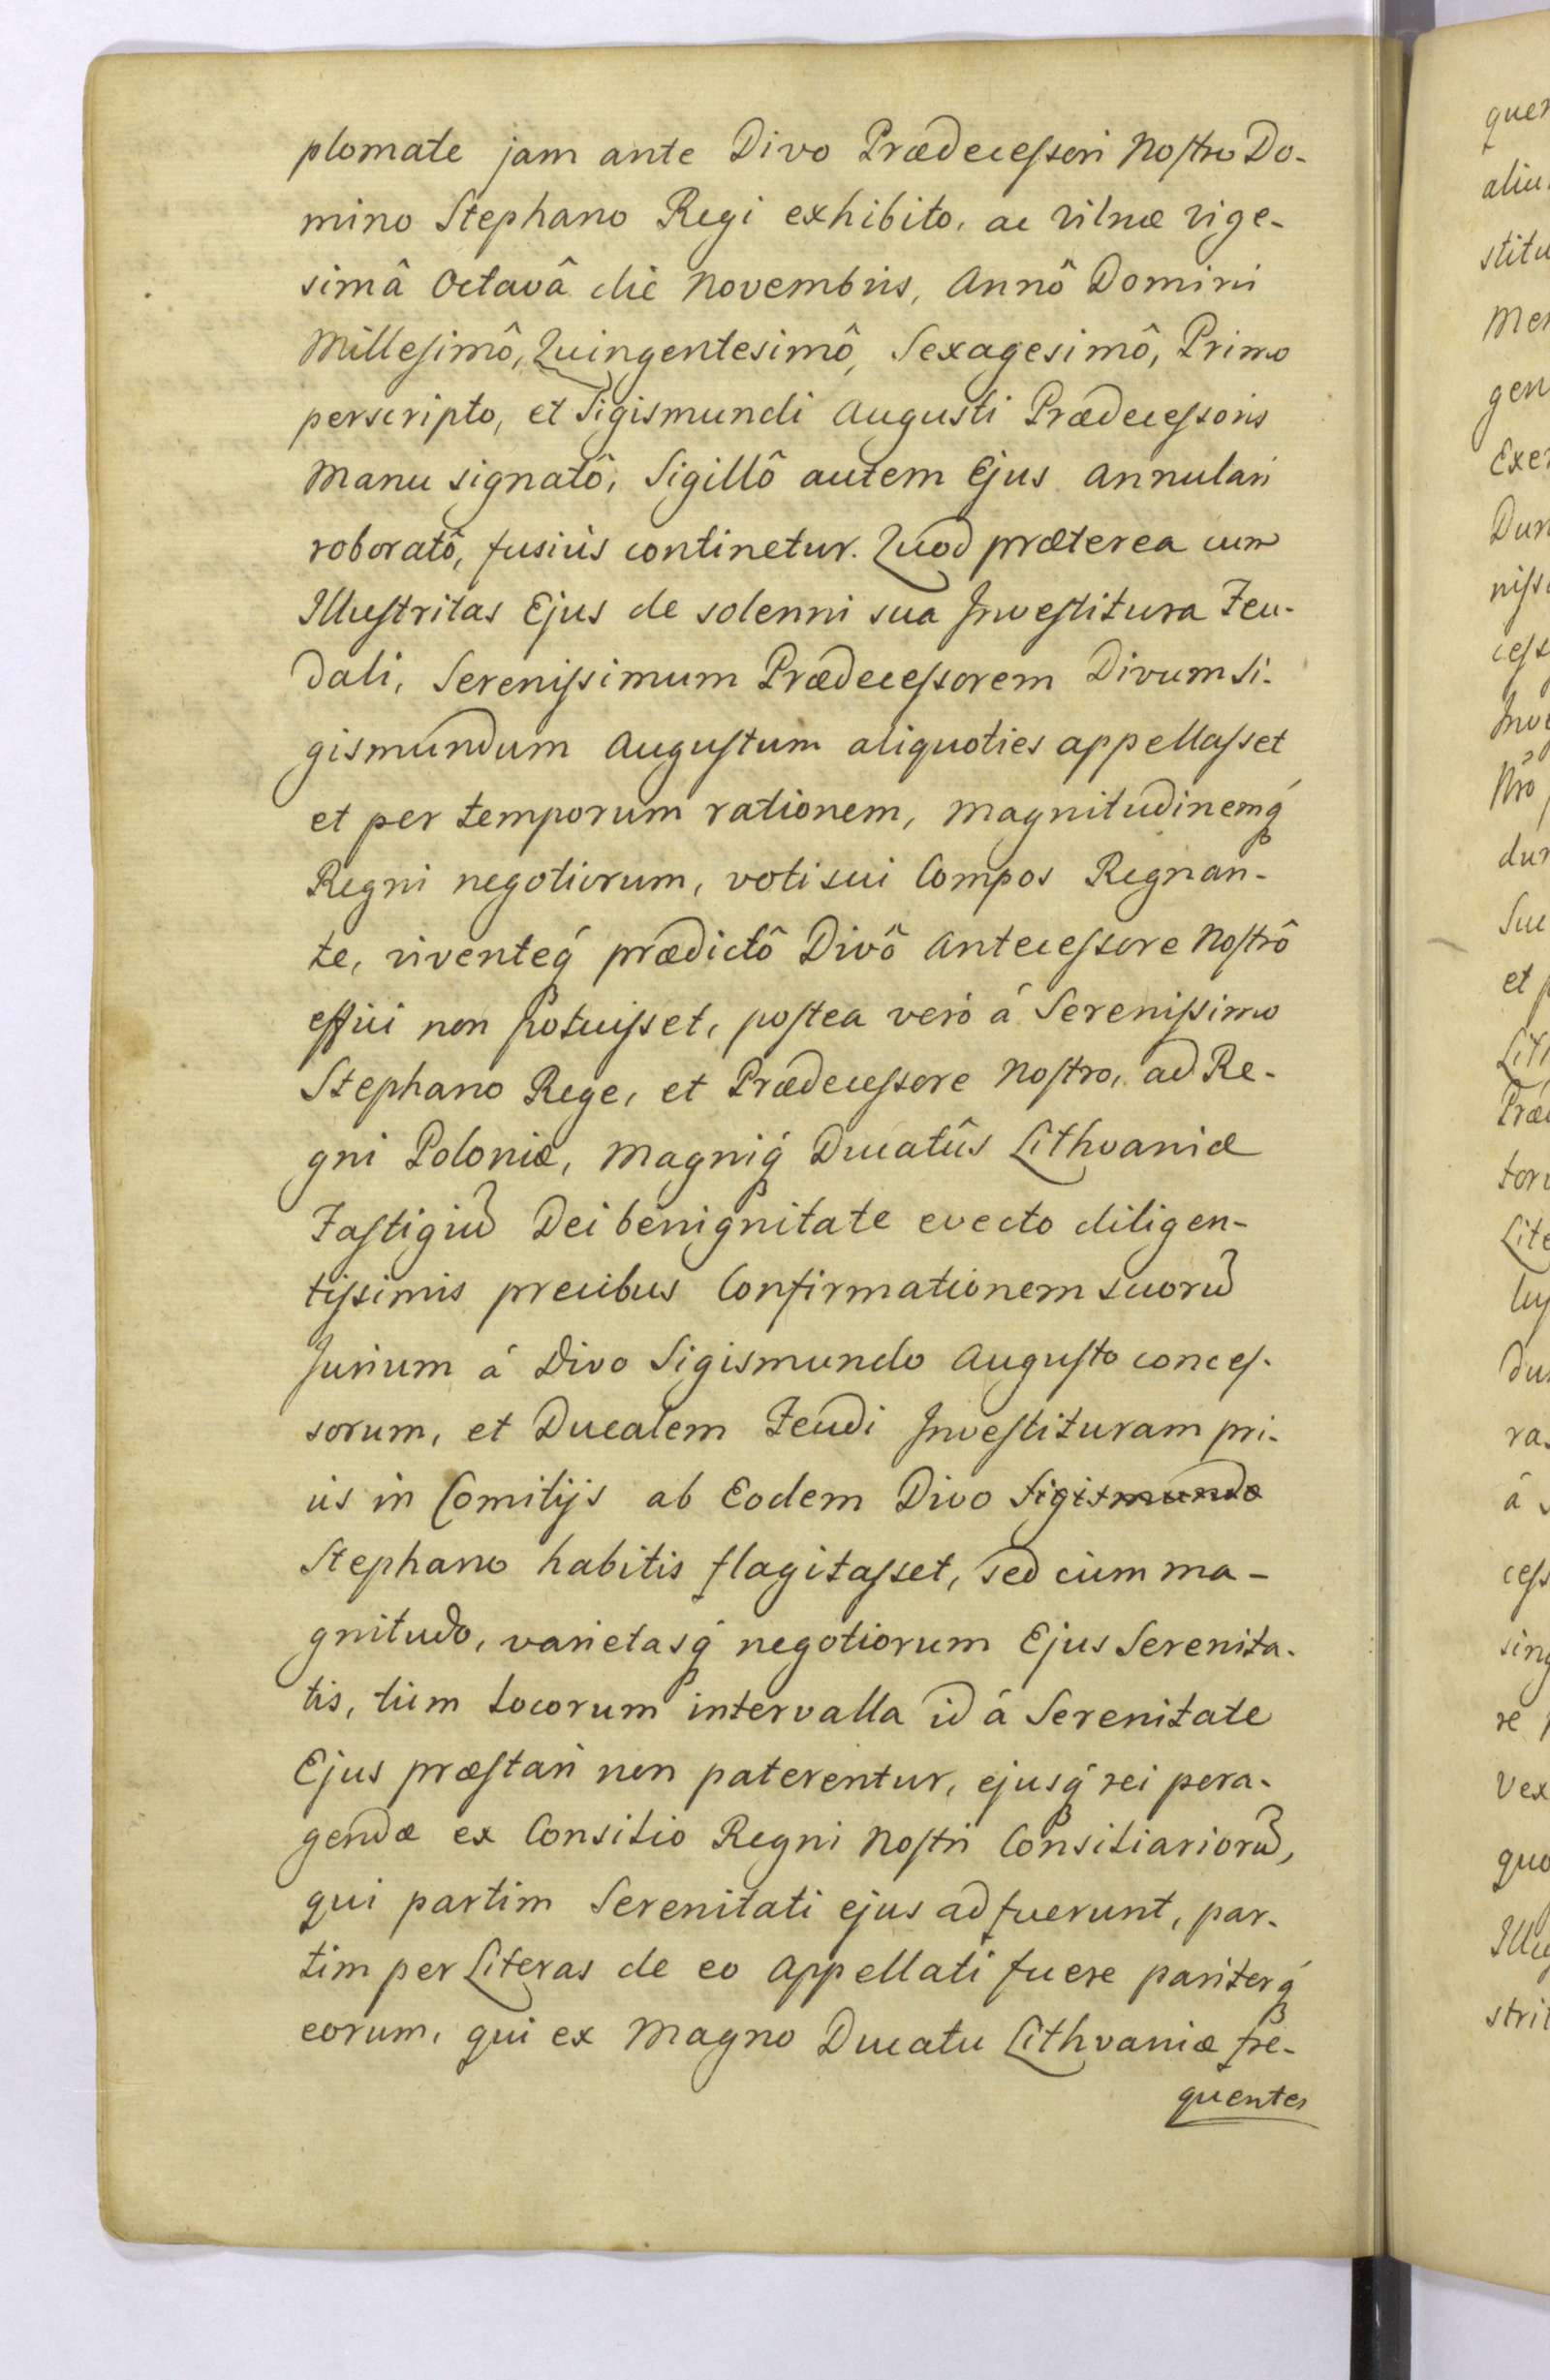 plomate jam ante Divo Prædecessori Nostro Do-
mino Stephano Regi exhibito, ac Vilnæ Vige-
simâ Octavâ die Novembris, Annô Domini
Millesimô, Quingentesimô, Sexagesimô, Primo
perscripto, et Sigismundi Augusti Prædecessoris
Manu signatô, Sigillô autem Ejus Annulari
roboratô, fusiùs continetur. Quod præterea cum
Illustritas Ejus de solenni sua Investitura Feu-
dali, Serenissimum Prædecessorem Divum Si-
gismundum Augustum aliquoties appellasset
et per temporum rationem, Magnitudinemq́
Regni negotiorum, voti sui Compos Regnan-
te, viventeq́ prædictô Divô Antecessore Nostrô
effici non potuisset, postea verò á Serenissimo
Stephano Rege, et Prædecessore Nostro, ad Re-
gni Poloniæ, Magniq́ Ducatûs Lithvaniæ
Fastigiũ Dei benignitate evecto diligen-
tissimis precibus Confirmationem suorũ
Jurium á Divo Sigismundo Augusto conces-
sorum, et Ducalem Feudi Investituram pri-
us in Comitijs ab Eodem Divo Sigismundo
Stephano habitis flagitasset, sed cùm ma-
gnitudo, varietasq́ negotiorum Ejus Serenita-
tis, tùm Locorum intervalla id á Serenitate
Ejus præstari non paterentur, ejusq́ rei pera-
gendæ ex Consilio Regni Nostri Consiliariorũ,
qui partim Serenitati ejus adfuerunt, par-
tim per Literas de eo Appellati fuere pariterq́
eorum, qui ex Magno Ducatu Lithvaniæ fre-
quentes
quer
aliu
stitu
Mer
gen
Exer
Dun
niss
cess
Inve
Nrõ
dur
Suc
et p
Lith
Præ
tor
Lite
du
ra
á
cess
sing
re
Vex
quo
Illu
strit